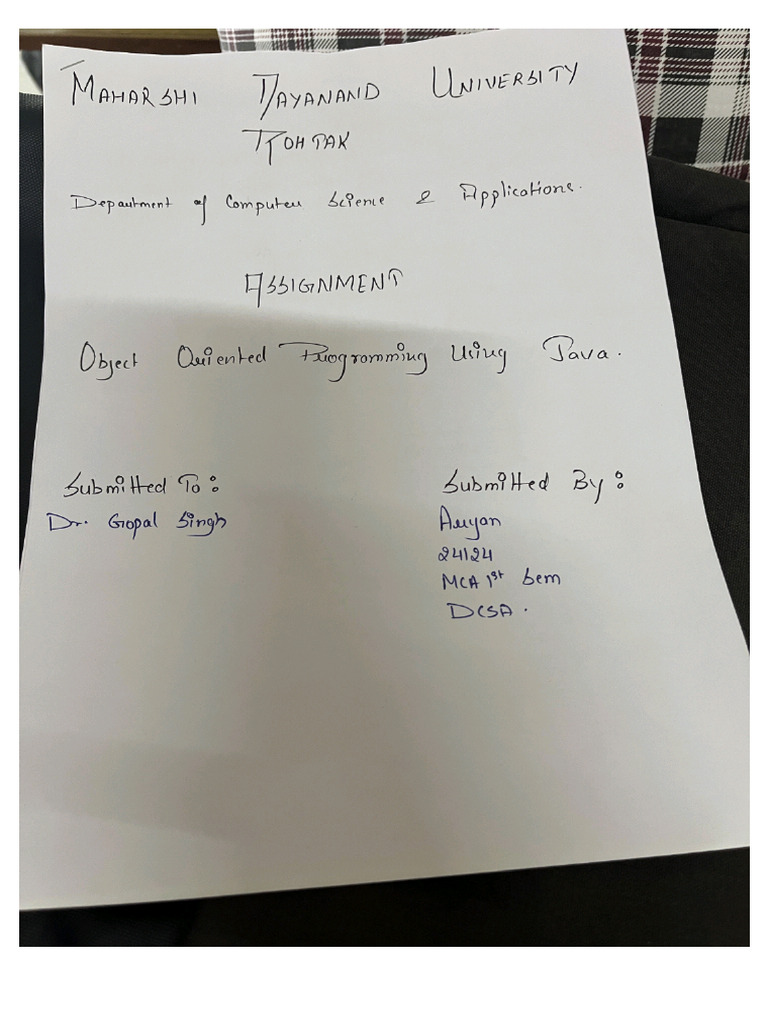 MAHARSHI DAYANAND UNIVERSITY
ROHTAK
Department of Computer Science & Applications.
ASSIGNMENT
Object Oriented Programming Using Java.
Submitted To:
Dr. Gopal Singh
Submitted By:
Aryan
24124
MCA 1st Sem
DCSA.